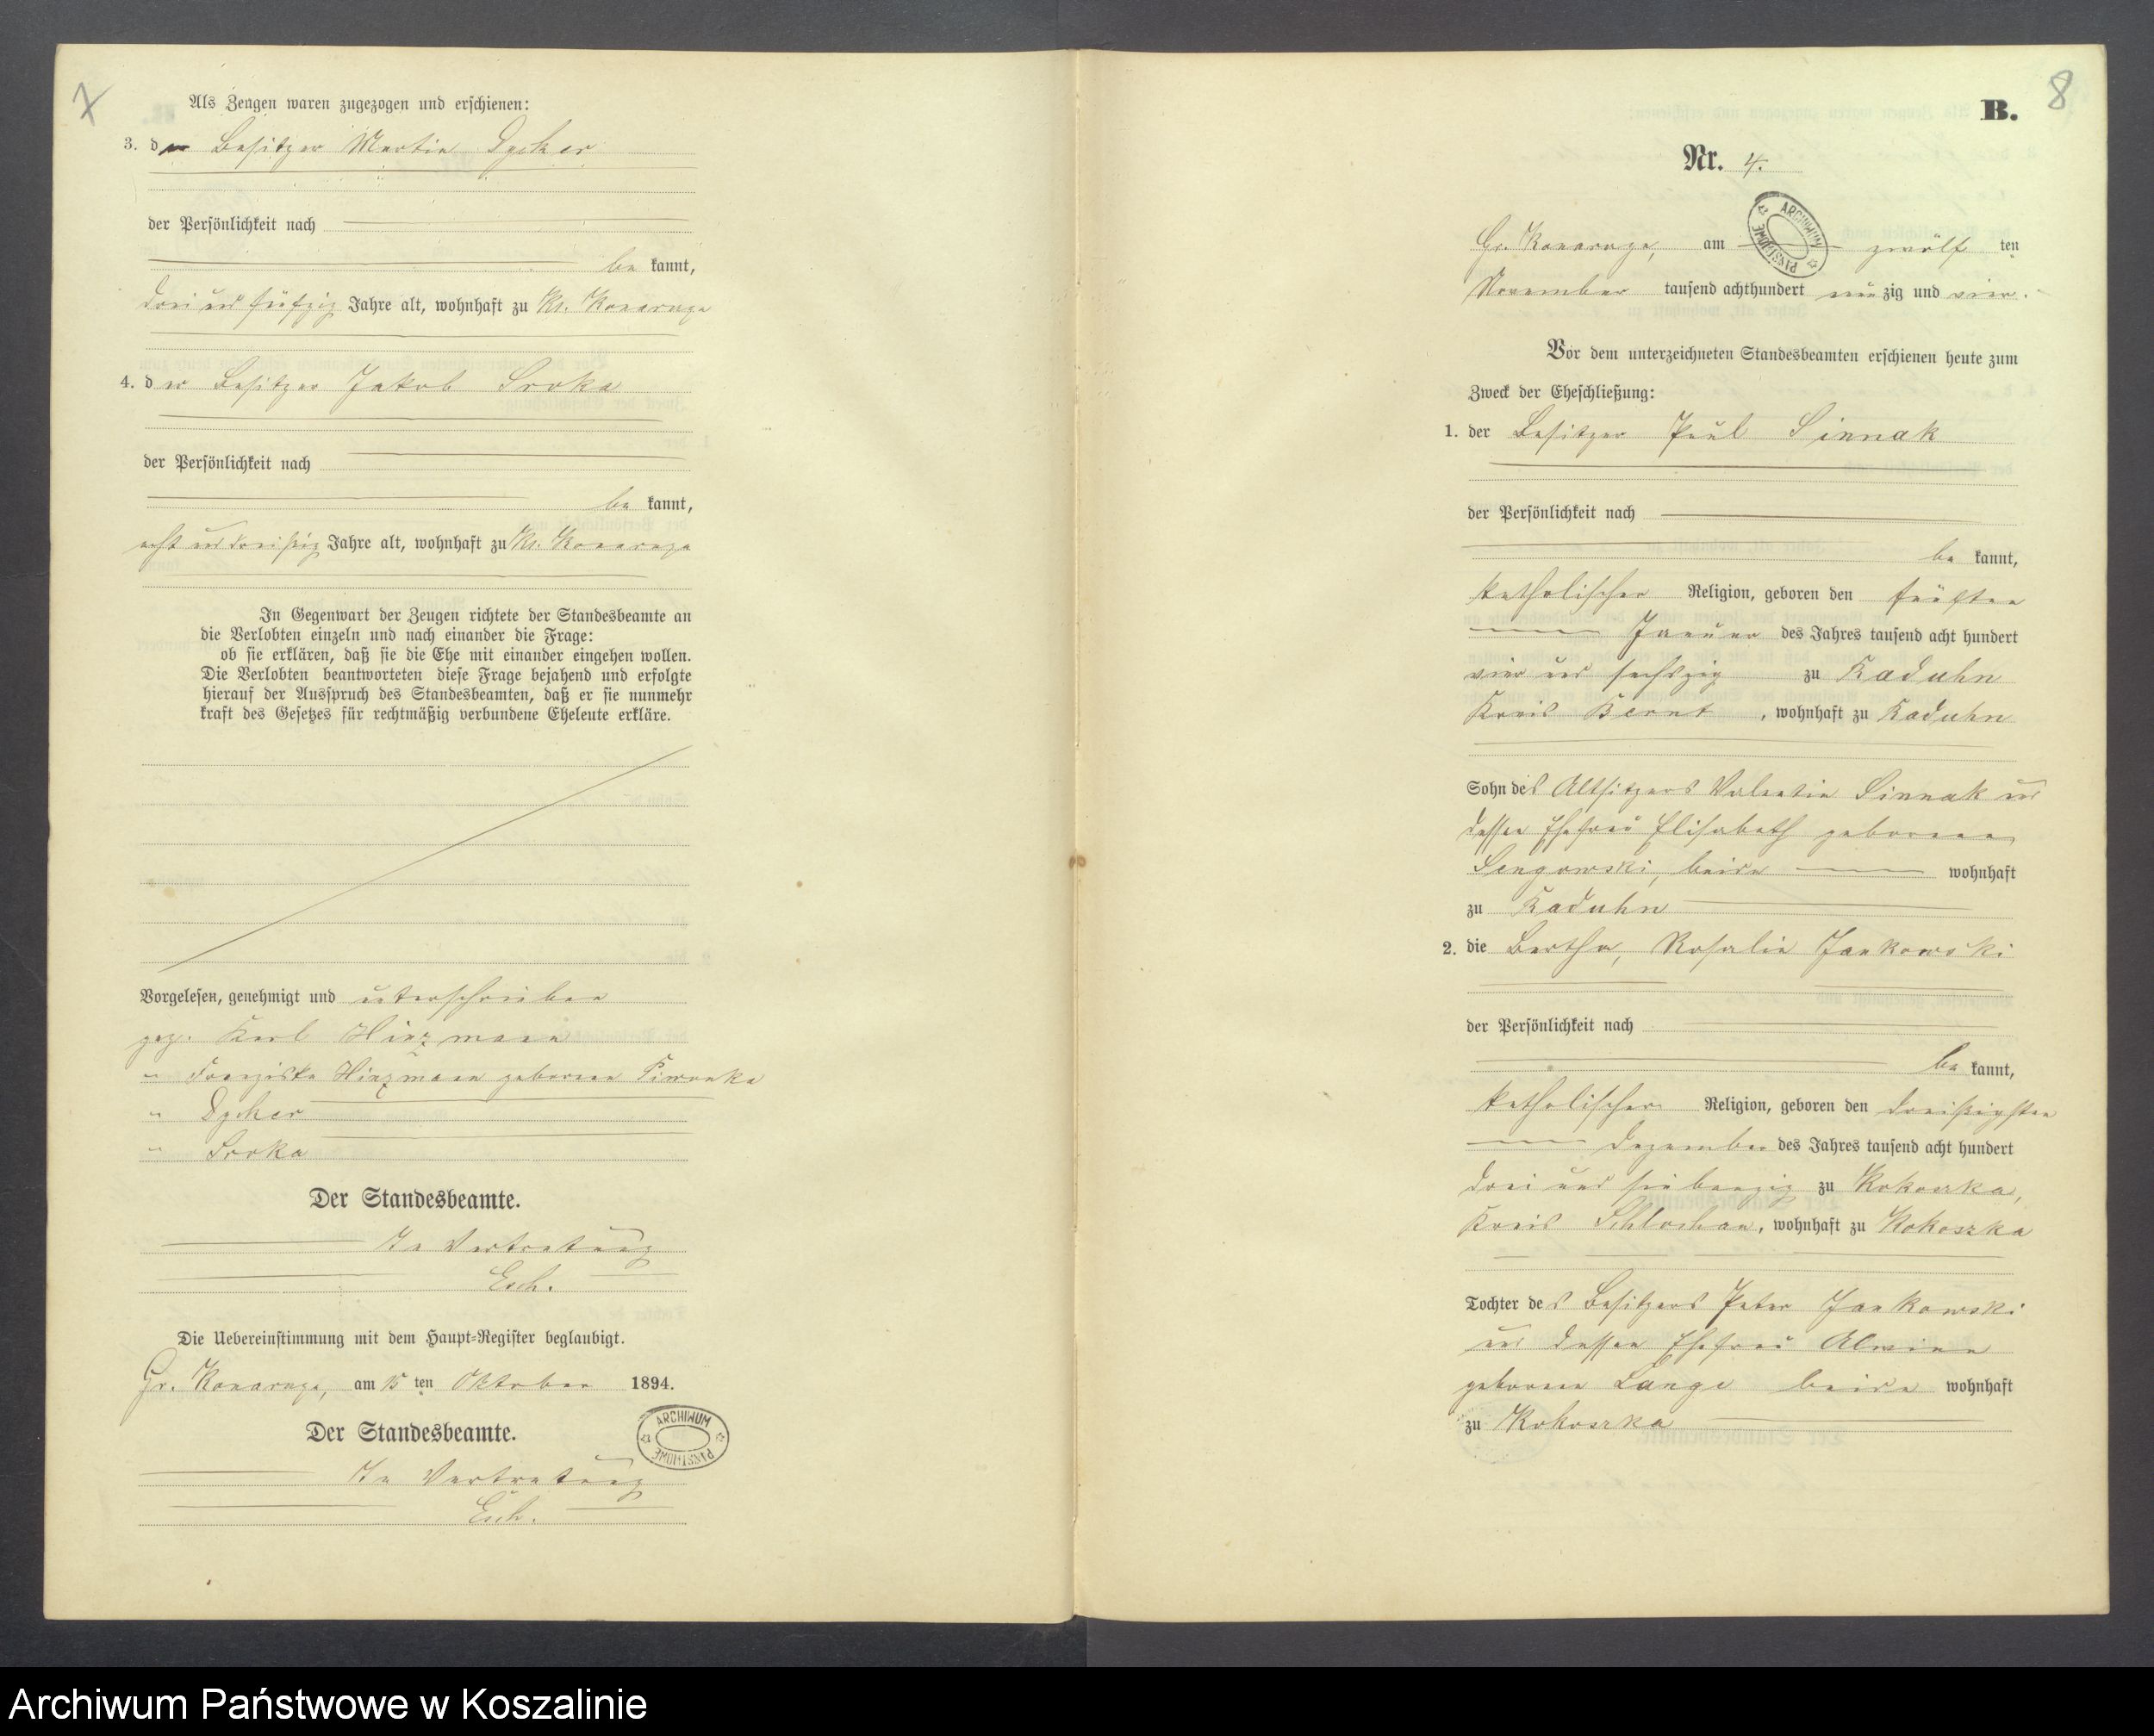 7
Als Zeugen waren zugezogen und erschienen:
3. der Besitzer Martin Dycker
der Persönlichkeit nach
be kannt,
drei und fünfzig Jahre alt, wohnhaft zu Kl. Konarczyn
4. der Besitzer Jakob Sroka
der Persönlichkeit nach
be kannt,
acht und dreißig Jahre alt, wohnhaft zu Kl. Konarczyn
In Gegenwart der Zeugen richtete der Standesbeamte an
die Verlobten einzeln und nach einander die Frage:
ob sie erklären, daß sie die Ehe mit einander eingehen wollen.
Die Verlobten beantworteten diese Frage bejahend und erfolgte
hierauf der Ausspruch des Standesbeamten, daß er sie nunmehr
kraft des Gesetzes für rechtmäßig verbundene Eheleute erkläre.
Vorgelesen, genehmigt und unterschrieben
gez. Karl Hinzmann
" Franziska Hinzmann geborene Piwonka
" Dycker
" Sroka
Der Standesbeamte.
In Vertretung
Esch.
Die Uebereinstimmung mit dem Haupt-Register beglaubigt.
Gr. am 15 ten Oktober 1894.
Der Standesbeamte.
ARCHIWUM PAŃSTWOWE
In Vertretung
Esch.
8
B.
Nr. 4.
ARCHIWUM PAŃSTWOWE
Gr. am zwölf ten
November tausend achthundert neun zig und vier.
Vor dem unterzeichneten Standesbeamten erschienen heute zum
Zweck der Eheschließung:
1. der Besitzer Paul Sinnak
der Persönlichkeit nach
be kannt,
katholischer Religion, geboren den fünften
Januar des Jahres tausend acht hundert
vier und sechszig zu Raduhn
Kreis Berent, wohnhaft zu Raduhn
Sohn des Altsitzers Valentin Sinnak und
dessen Ehefrau Elisabeth geborenen
Sengowski, beide wohnhaft
zu Raduhn
2. die Bertha, Rosalie Jankowski
der Persönlichkeit nach
be kannt,
katholischer Religion, geboren den dreißigsten
Dezember des Jahres tausend acht hundert
drei und siebenzig zu Kokoszka,
Kreis Schlochau, wohnhaft zu Kokoszka
Tochter des Besitzers Peter Jankowski
und dessen Ehefrau Alwine
geborene Lange beide wohnhaft
zu Kokoszka
Archiwum Państwowe w Koszalinie